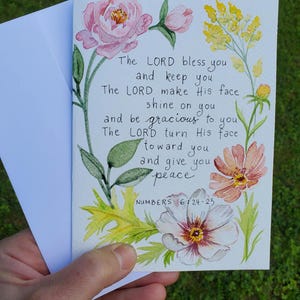 The LORD bless you
and keep you
The LORD make His face
shine on you
and be gracious to you
The LORD turn His face
toward you
and give you
peace
NUMBERS 6:24-25